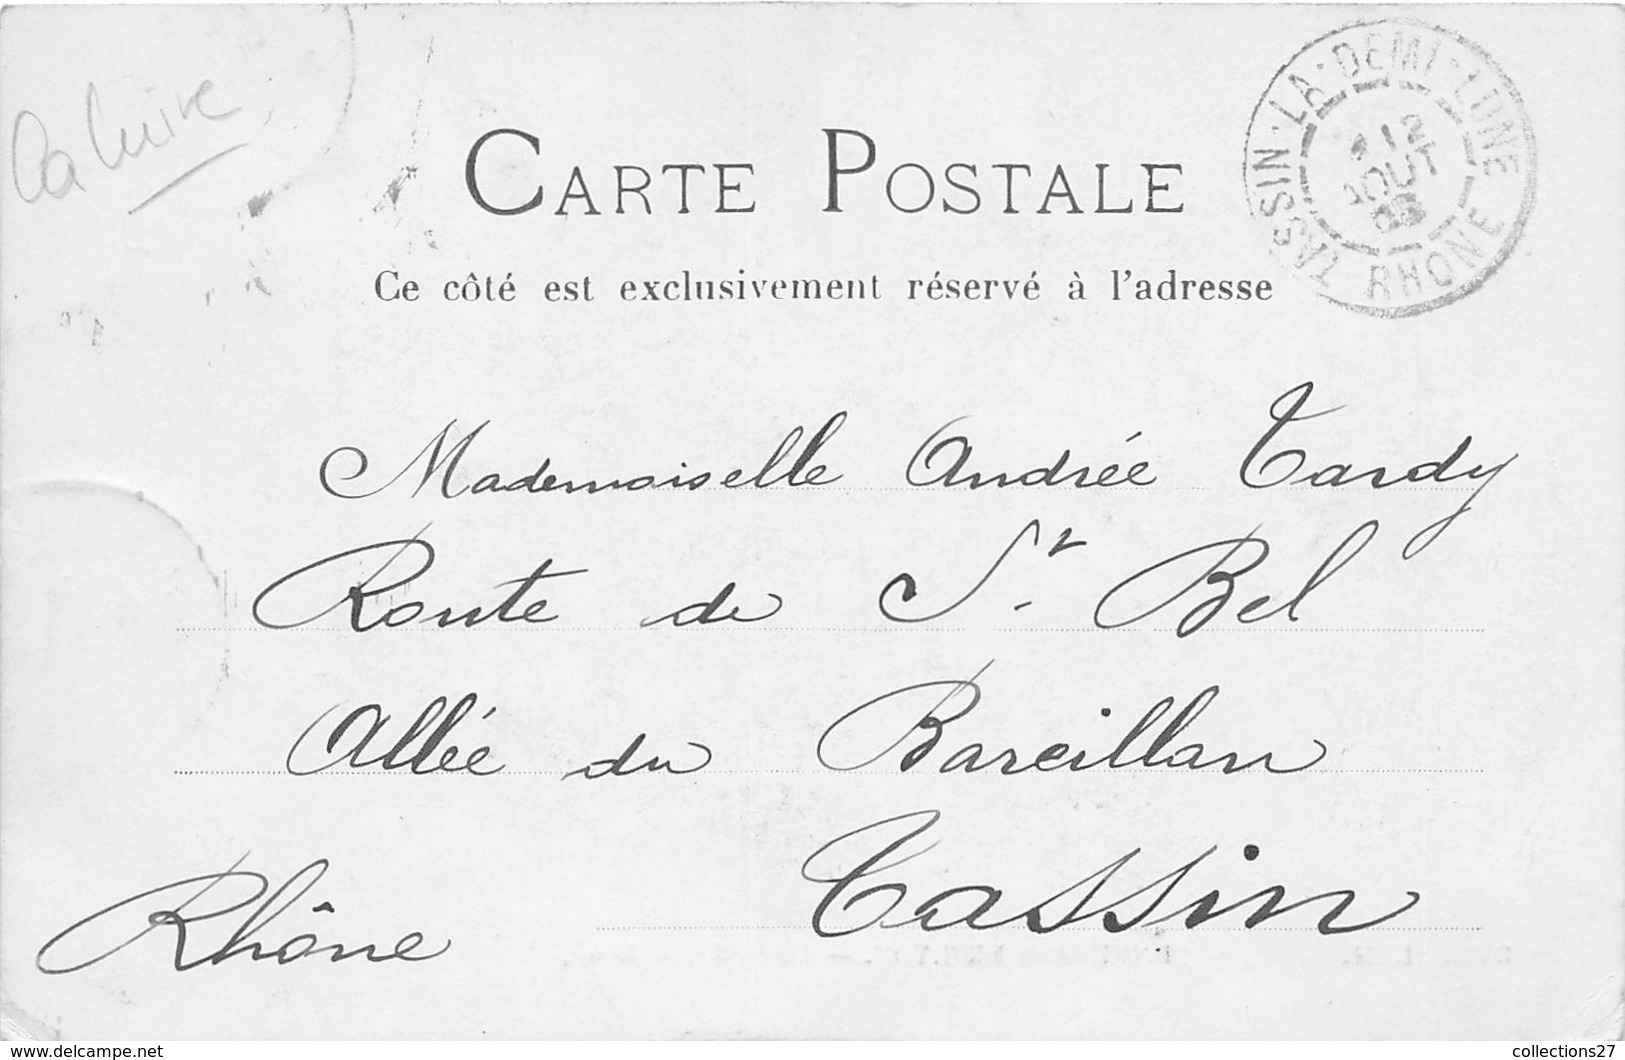 Caluire
CARTE POSTALE
TASSIN-LA-DEMI-LUNE
12
AOUT
RHONE
Ce côté est exclusivement réservé à l'adresse
Mademoiselle Andrée Tardy
Route de St. Bel
Allée du Bareillan
Tassin
Rhône
https://www.delcampe.net
collections27